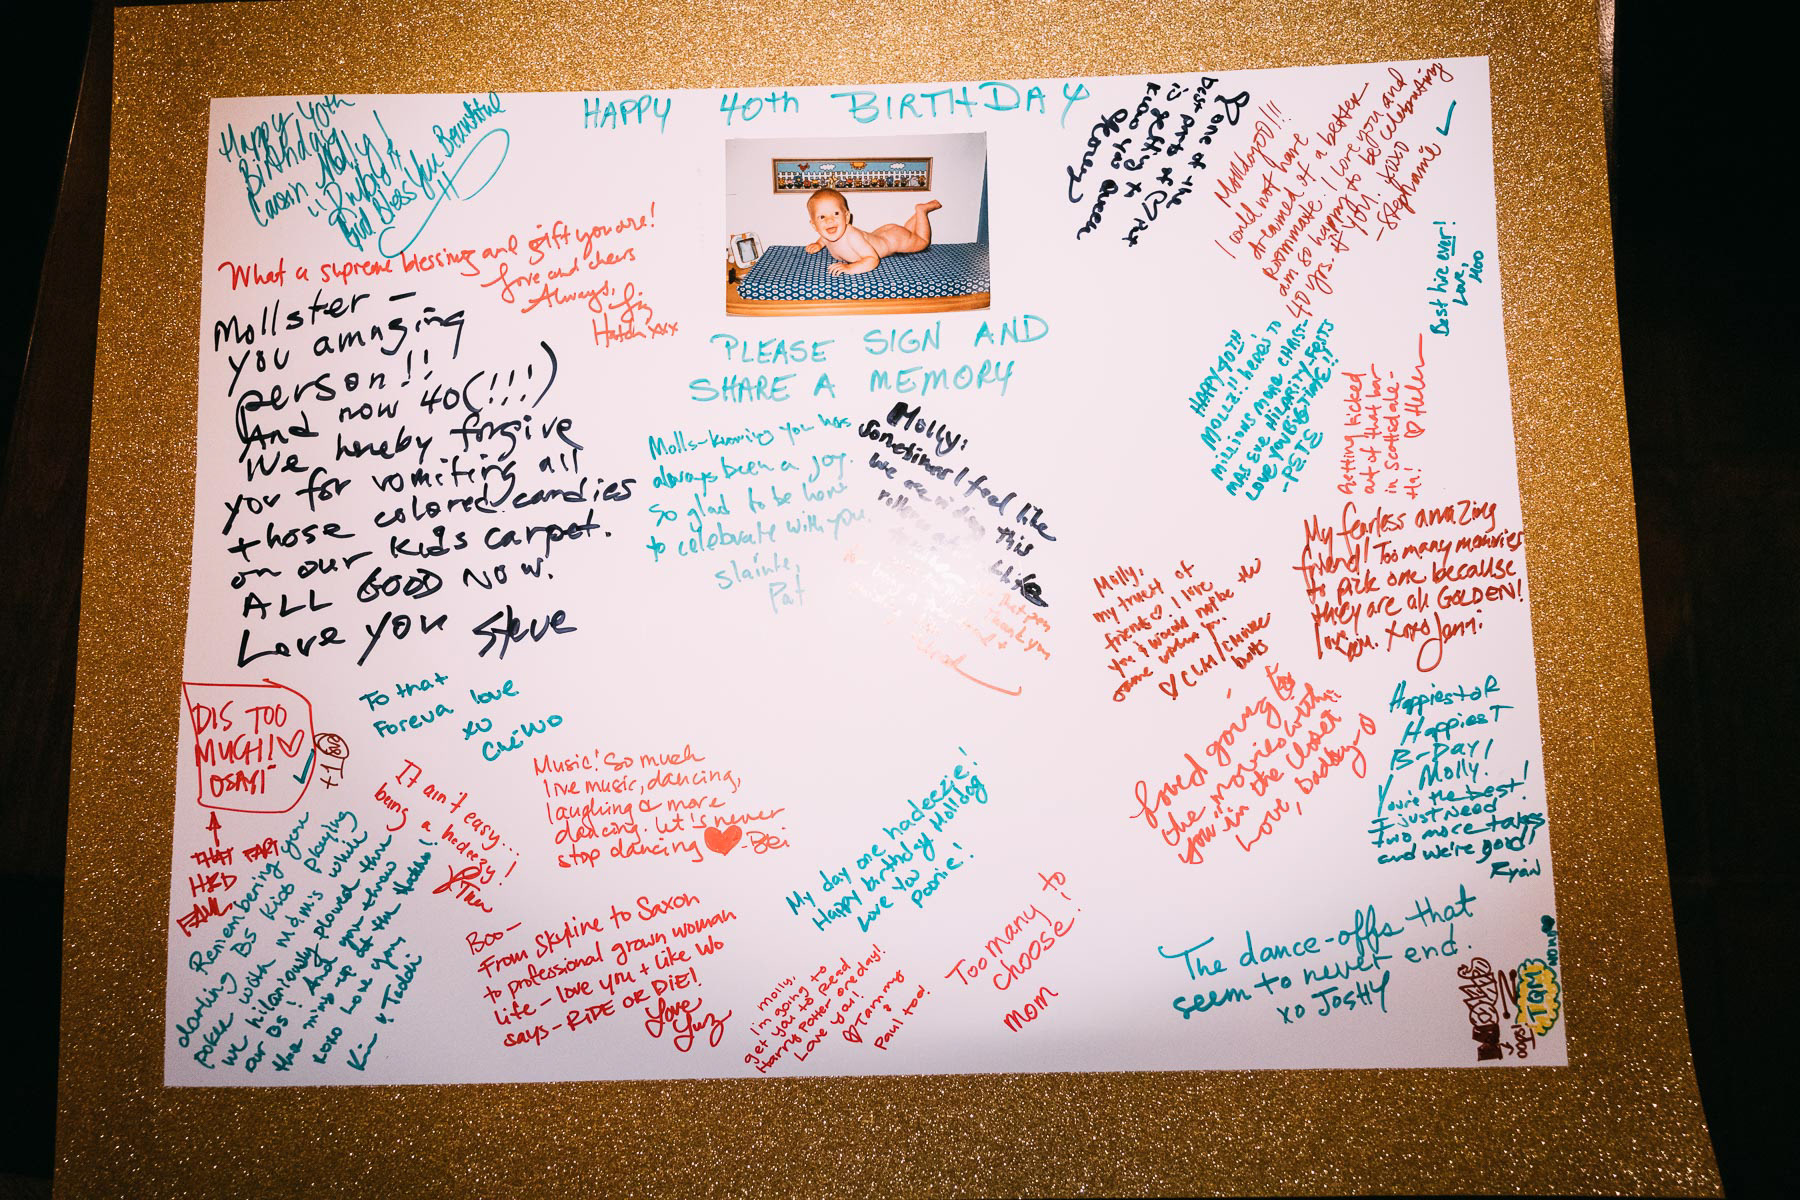 HAPPY 40th BIRTHDAY
PLEASE SIGN AND
SHARE A MEMORY
Happy 40th
Birthday
Molly!
God Bless You Beautiful
What a supreme blessing and gift you are!
Love and cheers
Always,
Liz
Hatch xxx
Mollster –
you amazing
person!!
And now 40(!!!)
We hereby forgive
you for vomiting all
those colored candies
on our kids carpet.
ALL GOOD NOW.
Love you Steve
one of the
best parts of
is getting to
know you
Mollagool!!!
I could not have
dreamed of a better
roommate. I love you and
am so happy to be celebrating
40 yrs. of you! xoxo
-Stephanie
Best hire ever!
Love,
Moo
HAPPY 40TH!!!
MOLLZ!! here's to
millions more CHRIST-
MAS EVE HILARITY-FESTS
LOVE YOU BIGTIME!!
-PETE
Getting kicked
out of that bar
in Scottsdale-
Ha! ♡ Helen
Molls-knowing you has
always been a joy.
So glad to be here
to celebrate with you.
Slainte,
Pat
Molly:
Sometimes I feel like
we are riding this
My fearless amazing
friend! Too many memories
to pick one because
they are all GOLDEN!
love you. xoxo Jenni
Molly,
my truest of
friends ♡. I love
you & would not be the
same without you.
DIS TOO
MUCH! ♡
OSAYI
+1
THAT PART
H8D
To that
Foreva love
xo
It ain't easy...
being a hadeezie!
Music! So much
live music, dancing,
laughing & more
dancing. Let's never
stop dancing ♥ -Bei
My day one hadeezie!
Happy birthday Molldog
Love you
Poonie!
Loved going to
the movies with
you in the closet
Love, Daddy-O
Happiest OR
HappiesT
B-Day,
Molly.
You're the best!
I just need
two more takes
and we're good!
Ryan
Remembering you
darling BS Kiob playing
poker with Mdm's while
we hilariously plowed thru
our BS! And you threw
the ming up at the
xoxo Love you
Kim & Teddi
Boo-
From Skyline to Saxon
to professional grown woman
life - love you + like Wo
says - RIDE OR DIE!
Love
Yuz
Molly,
I'm going to
get you to Read
Harry Potter one day!
Love you!
♡ Tammy
&
Paul too!
Too many to
choose!
mom
The dance-offs that
seem to never end.
xo JOSHY
oops!